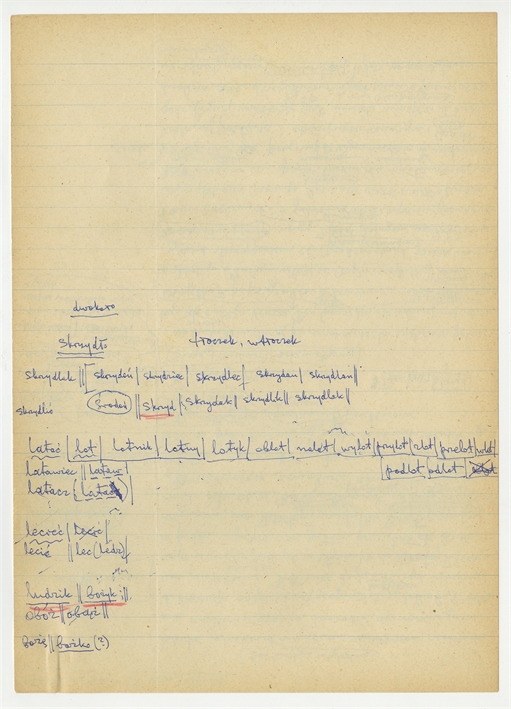 dwukoto
skrzydło troczek, wtroczek
skrydlak || skrydoń | skrydziec | skrzydlec | skrydan | skrydlan ||
skrydlić środoń || skryd | skrydak | skrydlik || skrydlak ||
latać | lot | lotnik | lotny | lotyk | oblot | nalot | wylot | przylot | zlot | przelot | wlot
latawiec || lataw | podlot | odlot
latacz
lecieć |
lecić || lec (ledz)
ludzik || bożyk ||
obóż ||
bożę || bożko (?)